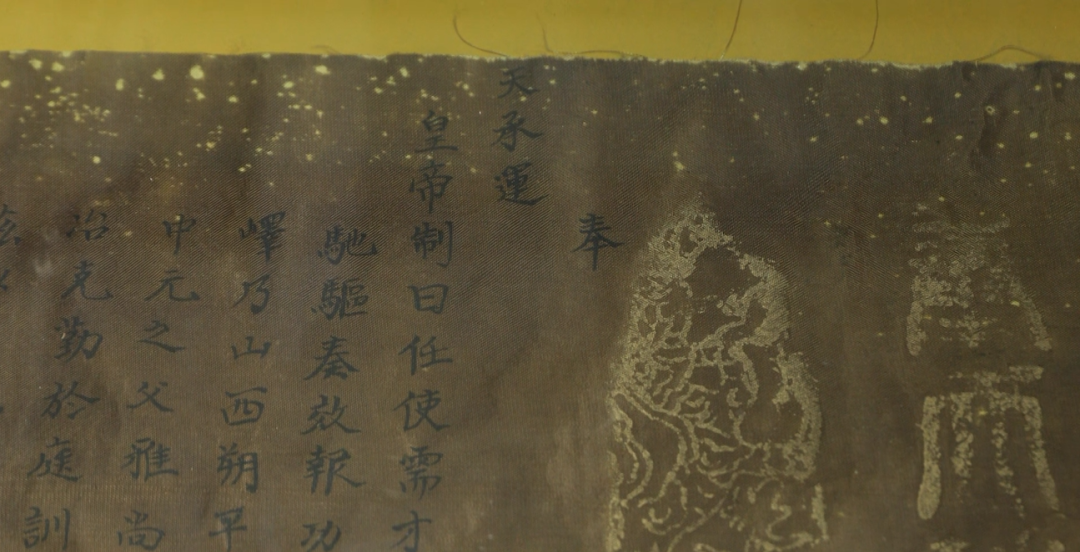 奉天
奉
天承運
皇帝制曰任使需才
馳驅奏效報功
嶧乃山西朔平
中元之父雅尚
冶克勤於庭訓
茲